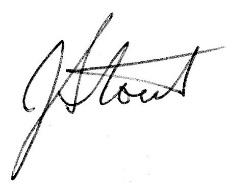 J Stout